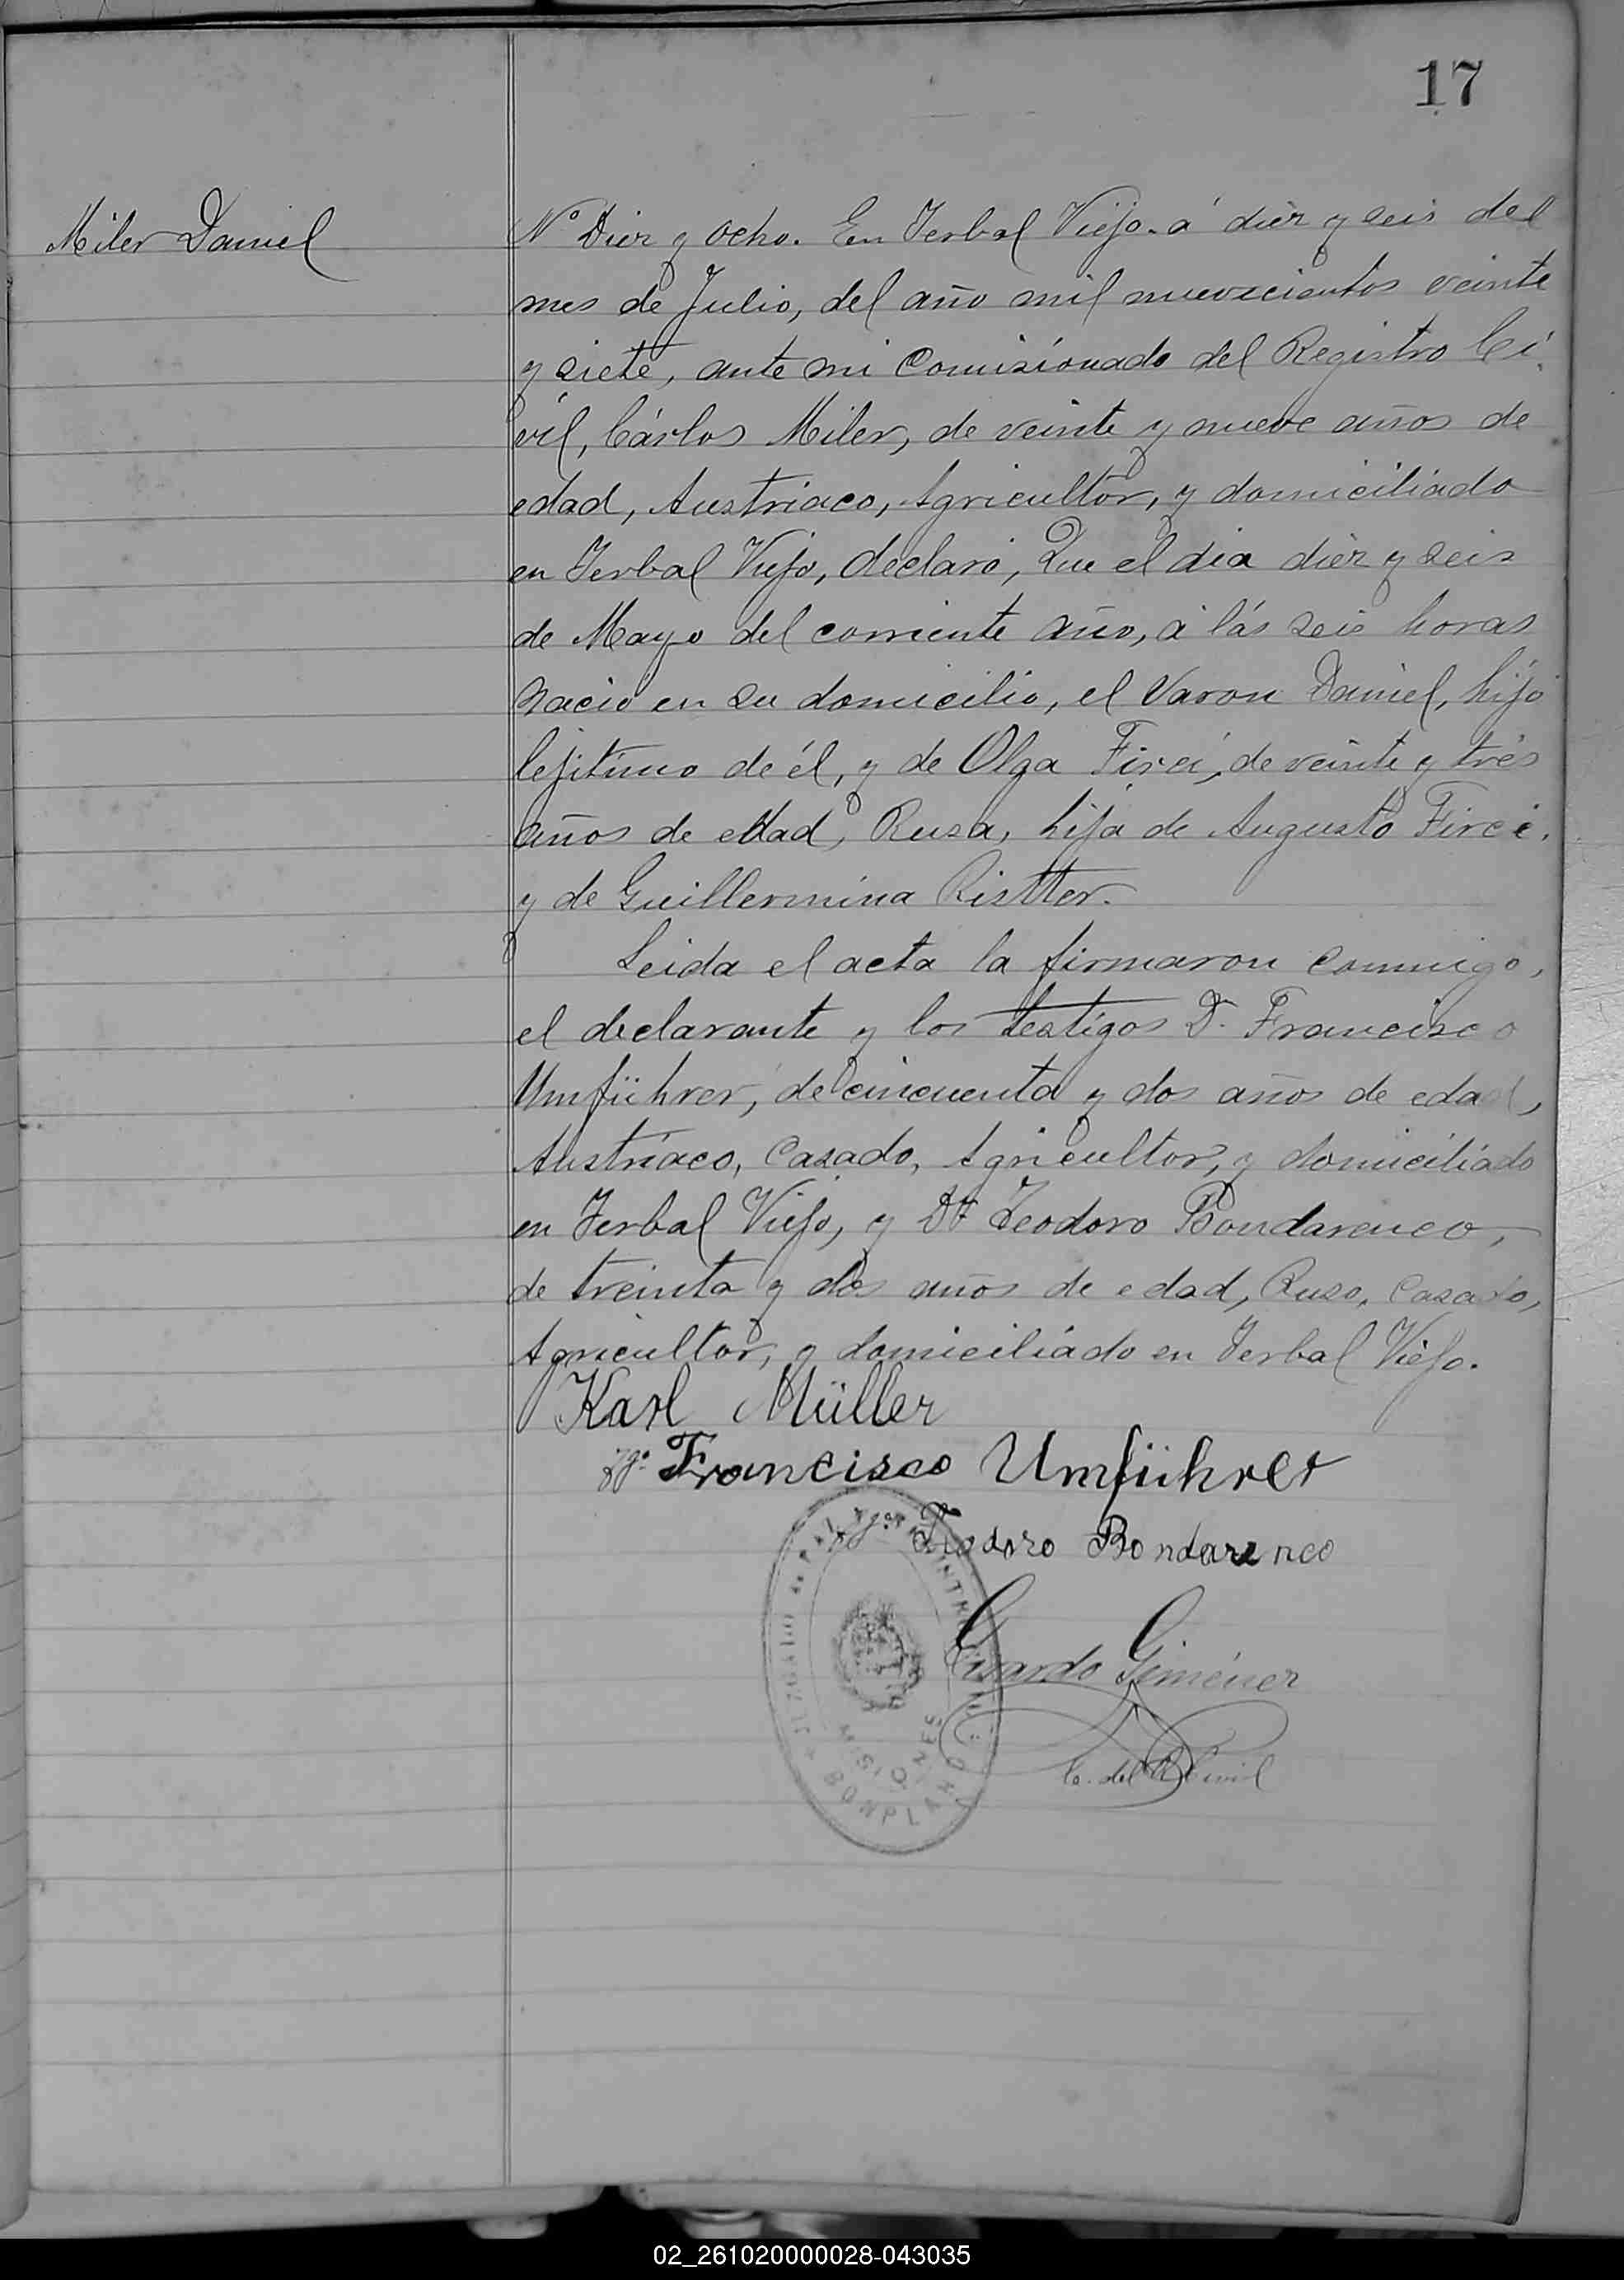 17
Miler Daniel
Nº Diez y ocho. En Yerbal Viejo. á diéz y seis del
mes de Julio, del año mil nuevecientos veinte
y siete, ante mi Comisionado del Registro Ci
vil, Cárlos Miler, de veinte y nueve años de
edad, Austriaco, Agricultor, y domiciliado
en Yerbal Viejo, declaró, Que el dia diéz y seis
de Mayo del corriente año, á lás seis horas
nació en su domicilio, el Varon Daniel, hijo
lejitimo de él, y de Olga Firei, de veinte y trés
años de edad, Rusa, hija de Augusto Firei,
y de Guillermina Ristter.
Leida el acta la firmaron conmigo,
el declarante y los testigos D. Francisco
Umführer, de cincuenta y dos años de edad,
Austríaco, Casado, Agricultor, y domiciliado
en Yerbal Viejo, y Dº Teodoro Bondarenco,
de treinta y dos años de edad, Ruso, Casado,
Agricultor, y domiciliado en Yerbal Viejo.
Karl Müller
Tgº Francisco Umführer
Tgº Teodoro Bondarenco
Giménez
C. del R. Civil
JUZGADO DE PAZ
MISIONES
BONPLAND
02_261020000028-043035